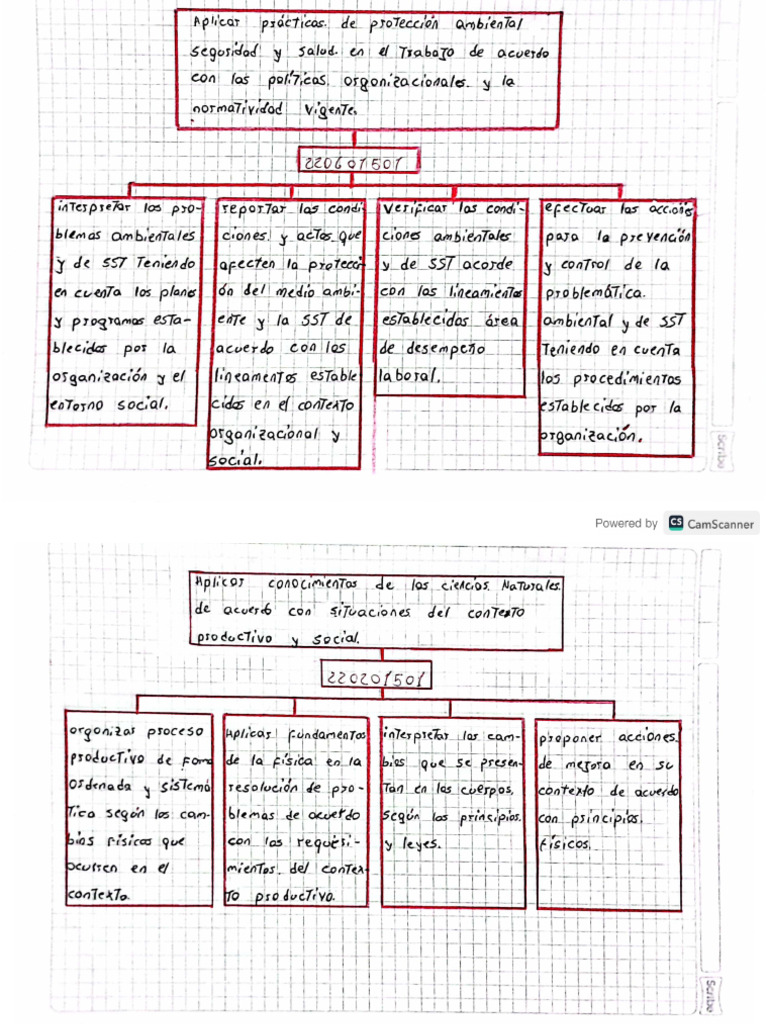 Aplicar prácticas de protección ambiental
seguridad y salud en el Trabajo de acuerdo
con las políticas organizacionales y la
normatividad vigente.
220601501
interpretar los pro-
blemas ambientales
y de SST Teniendo
en cuenta los planes
y programas esta-
blecidos por la
organización y el
entorno social.
reportar las condi
ciones y actos que
afecten la protecci
ón del medio ambi-
ente y la SST de
acuerdo con los
lineamentos estable
cidos en el contexto
organizacional y
social.
verificar las condi-
ciones ambientales
y de SST acorde
con los lineamientos
establecidos área
de desempeño
laboral.
efectuar las acciones
para la prevención
y control de la
problemática
ambiental y de SST
Teniendo en cuenta
los procedimientos
establecidos por la
organización.
Scribe
Powered by CS CamScanner
Aplicar conocimientos de las ciencias Naturales
de acuerdo con situaciones del contexto
productivo y social.
220201501
organizar proceso
productivo de forma
ordenada y sistemá
tica según los cam-
bios físicos que
ocurren en el
contexto.
Aplicar fundamentos
de la física en la
resolución de pro-
blemas de acuerdo
con los requeri-
mientos del contex-
to productivo.
interpretar los cam-
bios que se presen-
tan en los cuerpos,
según los principios
y leyes.
proponer acciones
de mejora en su
contexto de acuerdo
con principios
físicos.
Scribe